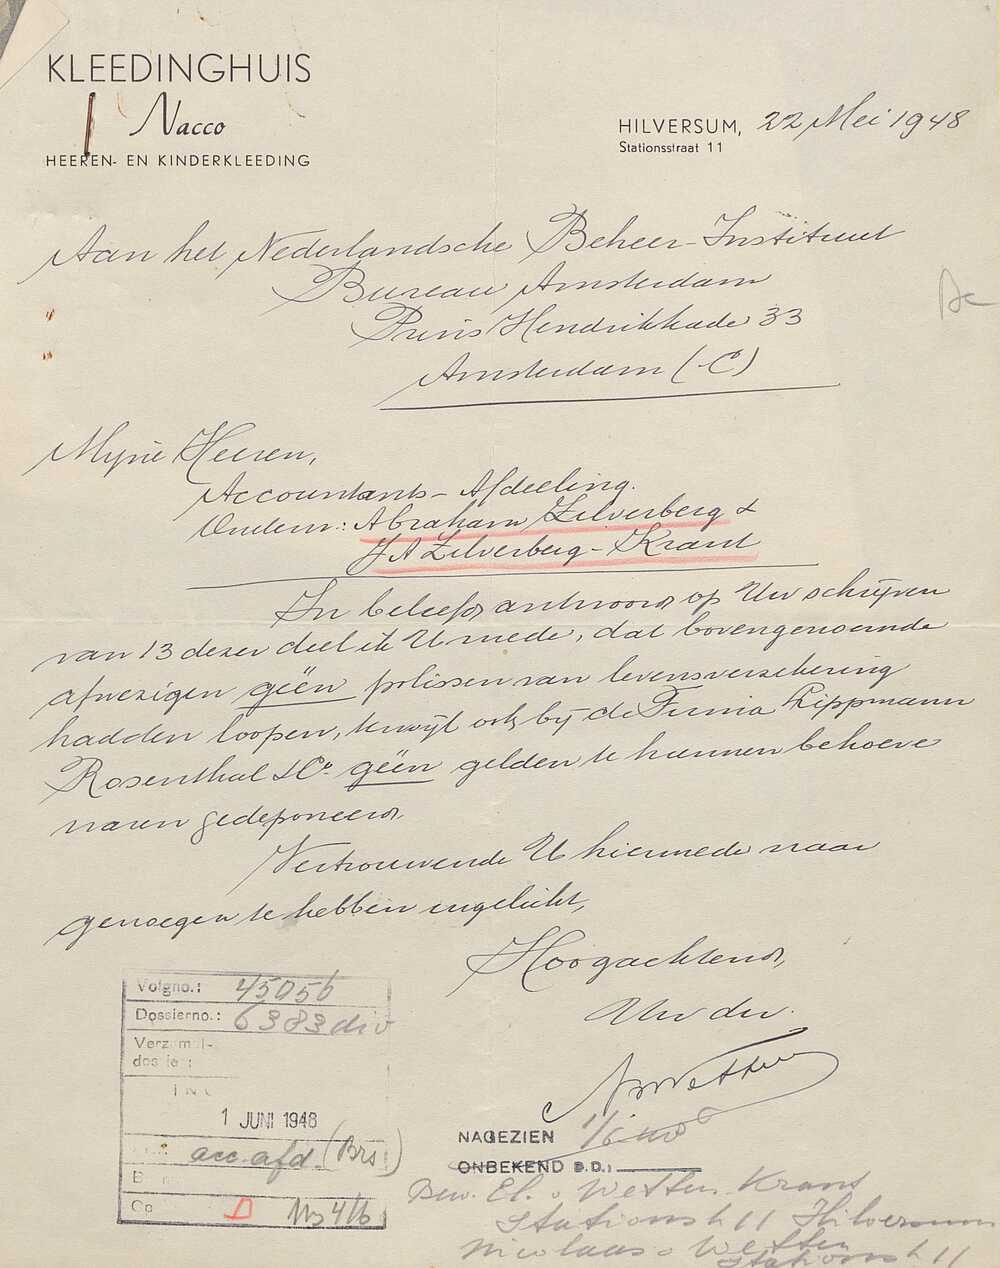 KLEEDINGHUIS
Nacco
HEEREN- EN KINDERKLEEDING
HILVERSUM, 22 Mei 1948
Stationsstraat 11
Aan het Nederlandsche Beheer-Instituut
Bureau Amsterdam
Prins Hendrikkade 33
Amsterdam (C)
Mijne Heeren,
Accountants-Afdeeling.
Onderw: Abraham Zilverberg &
J A Zilverberg-Krant
In beleefd antwoord op Uw schrijven
van 13 dezer deel ik U mede, dat bovengenoemde
afwezigen geën polissen van levensverzekering
hadden loopen, terwijl ook bij de Firma Lippmann
Rosenthal & Co. geën gelden te hunnen behoeve
waren gedeponeerd.
Vertrouwende U hiermede naar
genoegen te hebben ingelicht,
Hoogachtend,
Uw dw.
Volgno.: 45056
Dossierno.: 6383 div
Verzamel-
dossier:
1 JUNI 1948
acc. afd. (Brs)
D 4/6
NAGEZIEN 1/6
ONBEKEND B.D.:
Bew. El. v Wetten-Krant
Stationstr 11 Hilversum
Nicolaas v Wetten
Stationstr 11